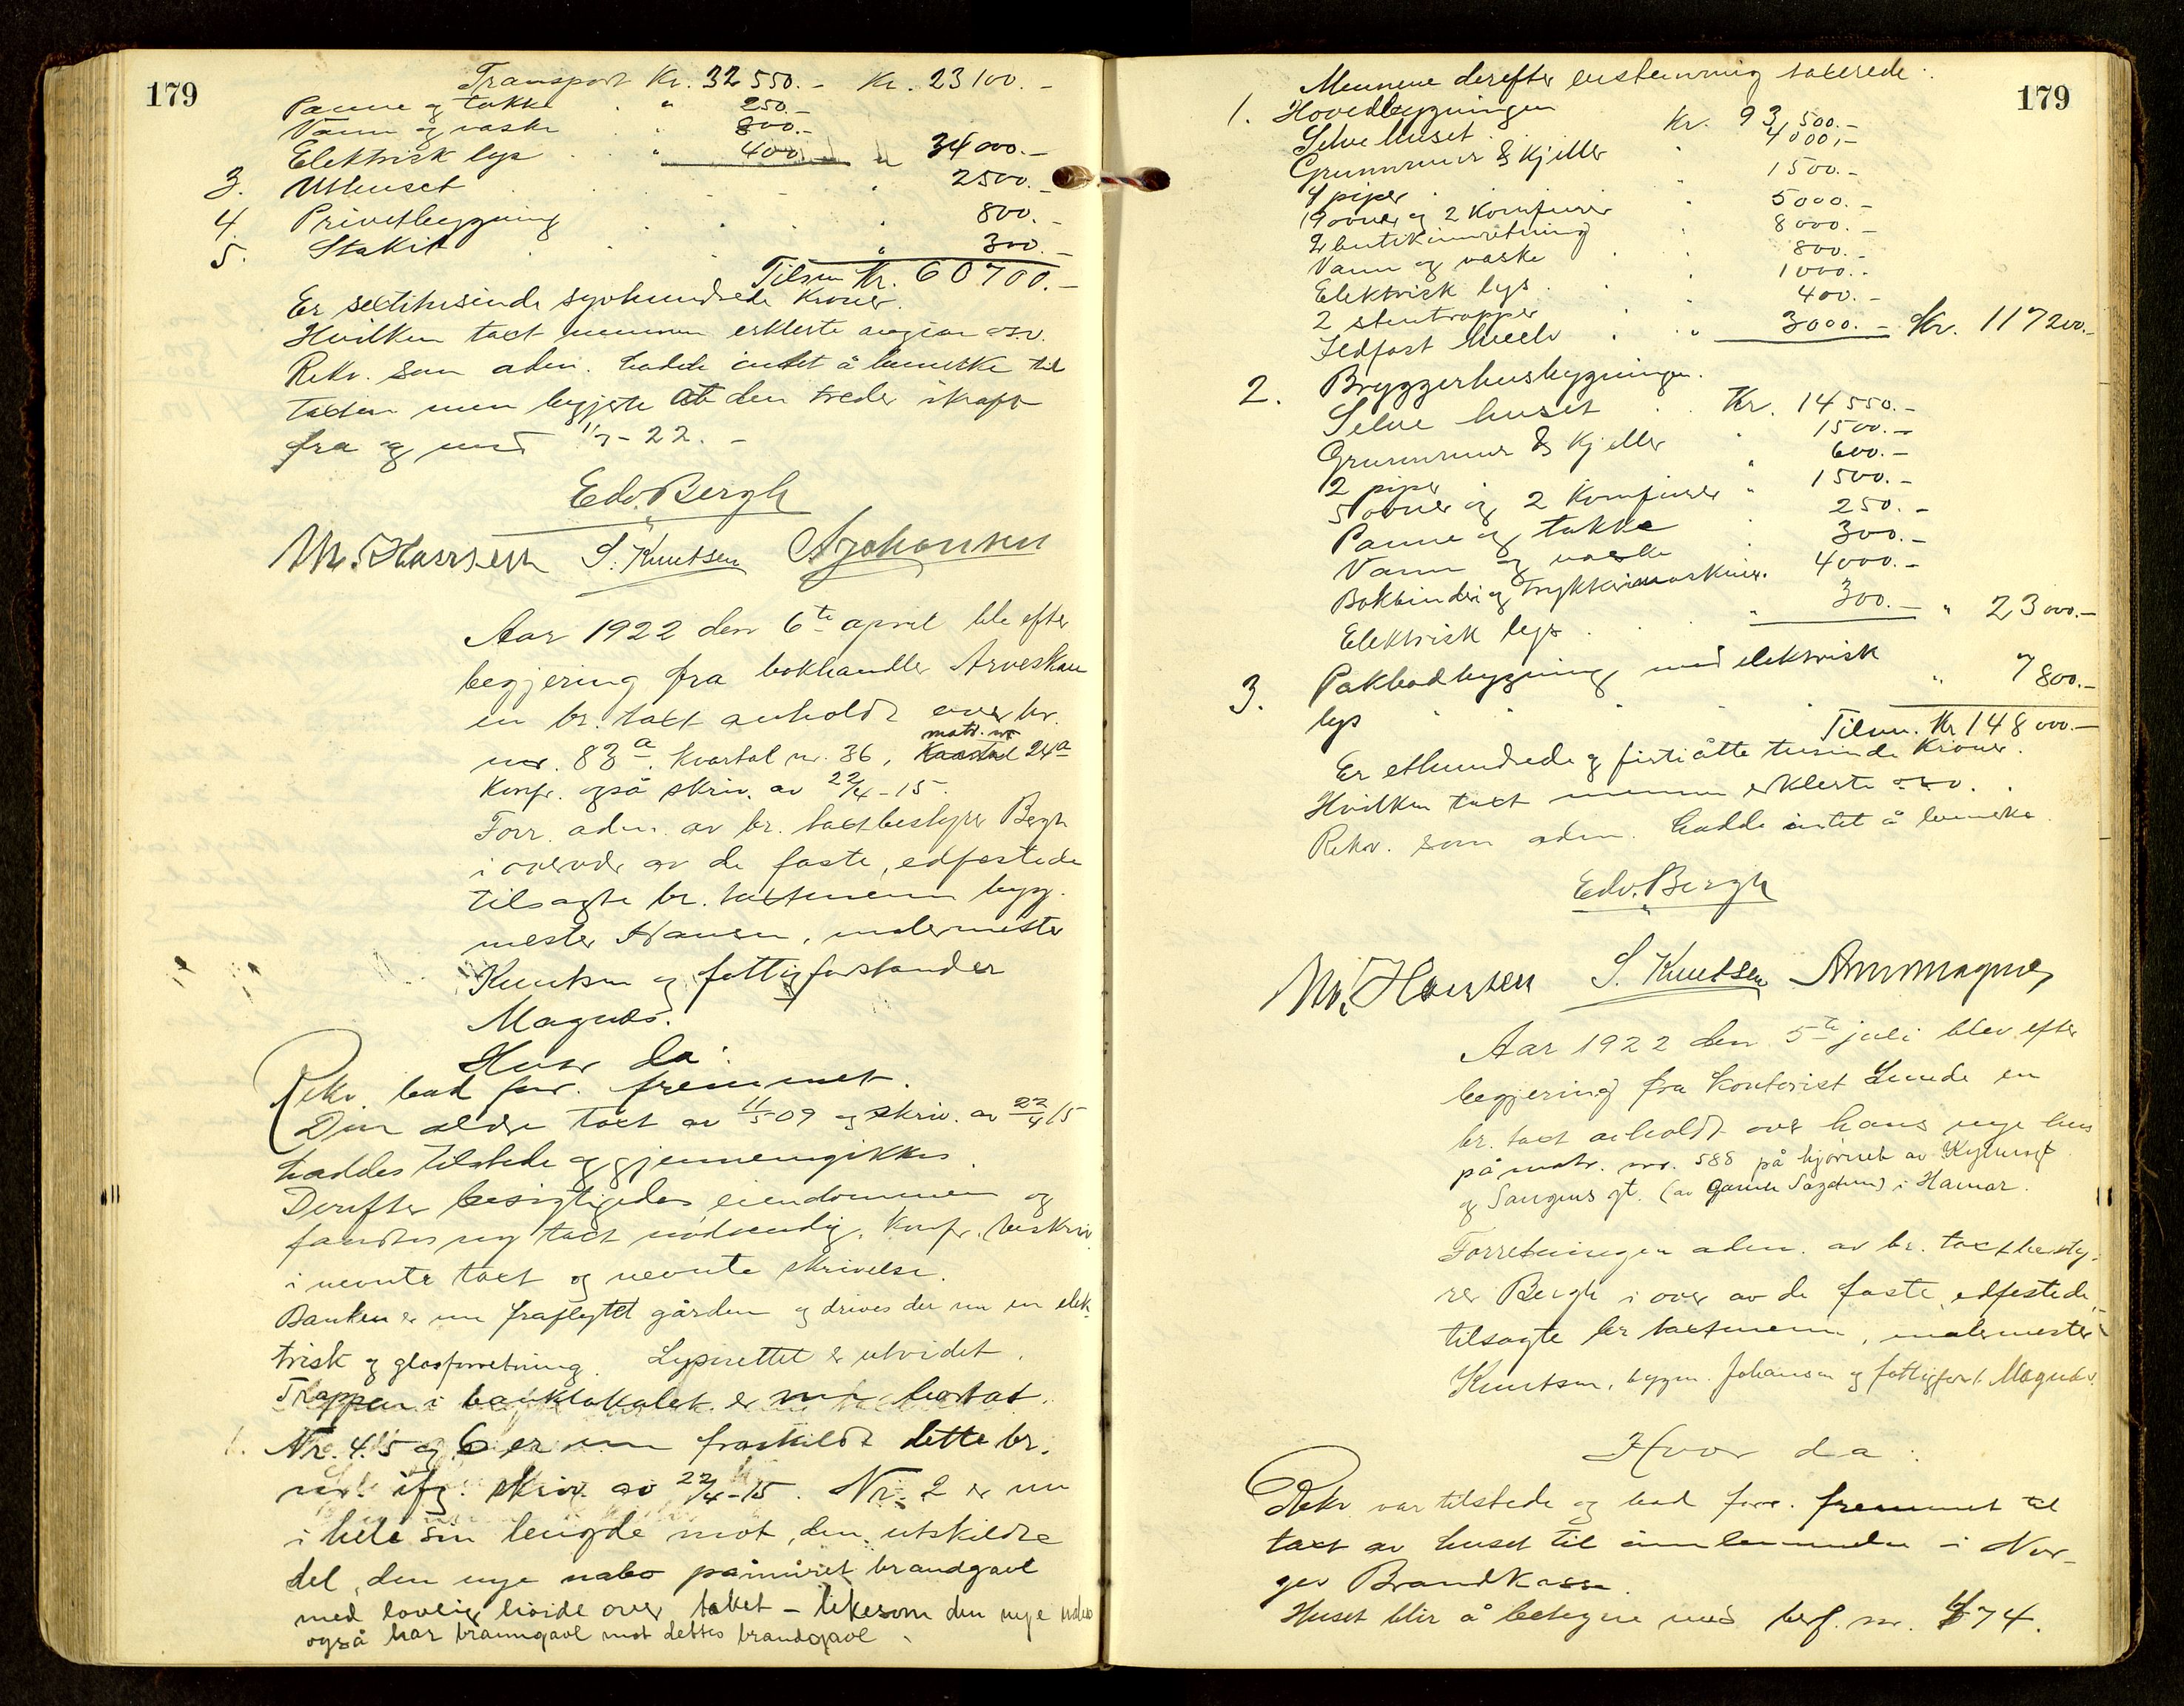 179
Transport Kr. 32550.- Kr. 23100.-
Panne og takke " 250.-
Vann og vaske " 800.-
Elektrisk lys " 400 " 34000.-
3. Uthuset " 2500.-
4. Privetbygning " 800.-
5. Stakit " 300.-
Tilsm Kr. 60700.-
Er sextitusinde syvhundrede Kroner.
Hvilken taxt mennene erklerte osv.
Rekv. som aden. hadde intet å bemerke til
taxten men begjerte at den treder ikraft
fra og med 1/7-22.-
Edv. Bergh
M. Hansen S. Knutsen A Johansen
Aar 1922 den 6te april ble efter
begjering fra bokhandler Arveskau
en br. taxt avholdt over br.
matr. nr
nr. 83a. Kvartal nr. 36, Kvartal 24a
Konfr. også skriv. av 22/4-15.
Forr. adm. av br. taxtbestyrer Bergh
i overvær av de faste, edfestede
tilsagte br. taxtmenn bygg.
mester Hansen, malermester
Knutsen og fattigforstander
Magnæs.
Hvor da:
Rekv. bad forr. fremmet.
Den eldre taxt av 11/5 09 og skriv. av 22/4 15
haddes tilstede og gjennemgikkes.
Derefter besigtigedes eiendommen og
fandtes ny taxt nødvendig. Konfr. beskriv.
i nevnte taxt og nevnte skrivelse.
Banken er nu fraflyttet gården og drives der nu en elek
trisk og glasforretning. Lysnettet er utvidet.
Trappen i banklokalet er nu borttat.
1. Nr. 4, 5 og 6 er nu fraskildt dette br.
nr. ifg. skriv. av 22/4-15. Nr. 2 er nu
i hele sin lengde mot den utskildte
del, den nye nabo påmuret brandgavl
med lovlig høide over taket - likesom den nye nabo
også har branngavl mot dettes brandgavl.
179
Mennene derefter enstemmig taxerede:
1. Hovedbygningen
Selve huset Kr. 93,500.-
Grunnmur & Kjeller " 4000,-
4 piper " 1500.-
19 ovner og 2 Komfurer " 5000.-
2 butikinnretning " 8000.-
Vann og vaske " 800.-
Elektrisk lys " 1000.-
2 stentrapper " 400.-
Ildfast hvelv " 3000.- Kr. 117200.-
2. Bryggerhusbygningen.
Selve huset Kr. 14550.-
Grunnmur & Kjeller " 1500.-
2 piper " 600.-
5 ovner og 2 Komfurer " 1500.-
Panne og takke 250.-
Vann og vaske 300.-
Bokbinderi og Trykkerimaskiner. 4000.-
Elektrisk lys " 300.- " 23000.-
3. Pakbodbygning med elektrisk
lys " 7800.-
Tilsm. Kr 148000.-
Er ethundrede og firtiåtte tusinde Kroner.
Hvilken taxt mennene erklerte osv.
Rekv. som aden. hadde intet å bemerke.
Edv. Bergh
M. Hansen S. Knutsen Am Magnæs
Aar 1922 den 5te juli blev efter
begjering fra Kontorist Lunde en
br. taxt avholdt over hans nye hus
på matr. nr. 588 på hjørnet av
og gt. (av ) i Hamar.
Forretningen adm. av br. taxtbesty-
rer Bergh i over av de faste, edfestede,
tilsagte br taxtmenn, malermester
Knutsen, byggm. Johansen og fattigforst. Magnæs.
Hvor da:
Rekv. var tilstede og bad forr. fremmet til
taxt av huset til innlemmelse i Nor-
ges Brandkasse.
Huset blir å betegne med br. nr. 674.